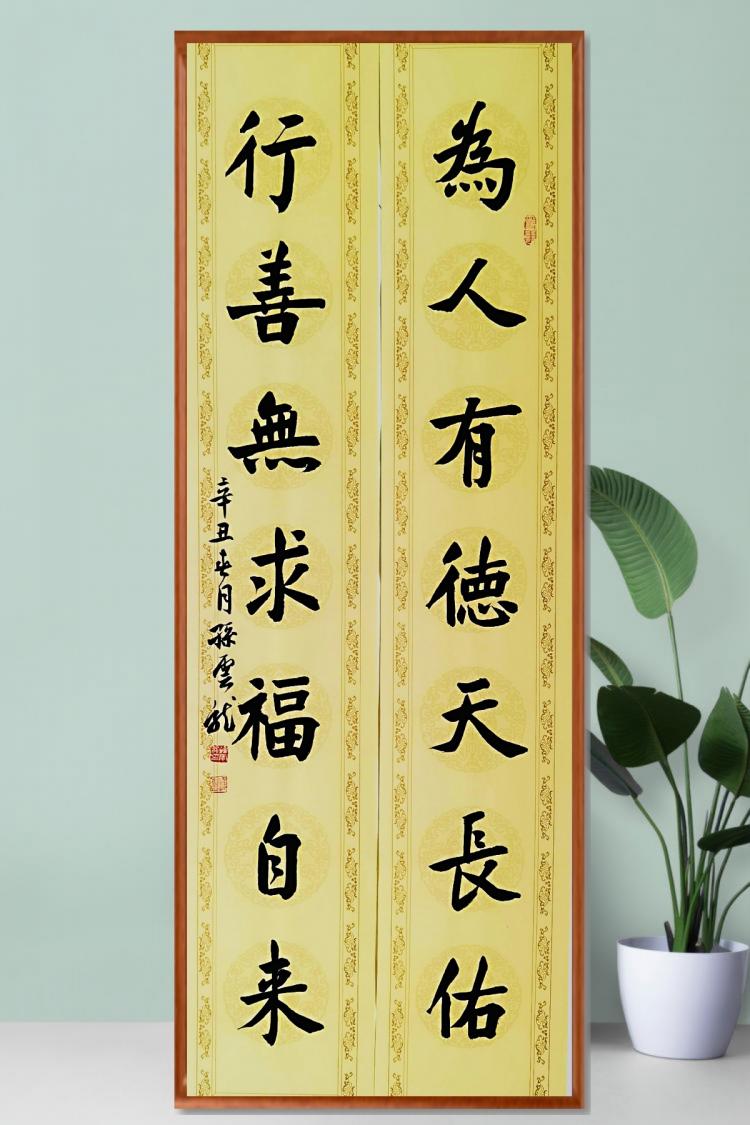 為人有德天長佑
行善無求福自来
辛丑春月孫雲龍